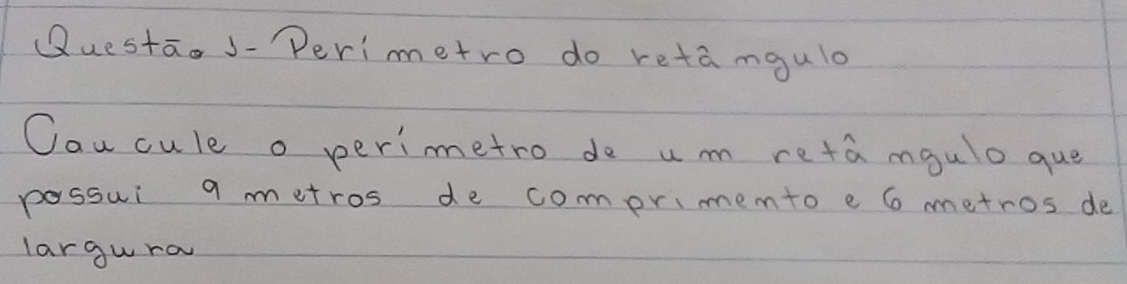 Questão 1- Perímetro do retâmgulo
Caucule o perímetro de um retâmgulo que
possui 9 metros de comprimento e 6 metros de
largura